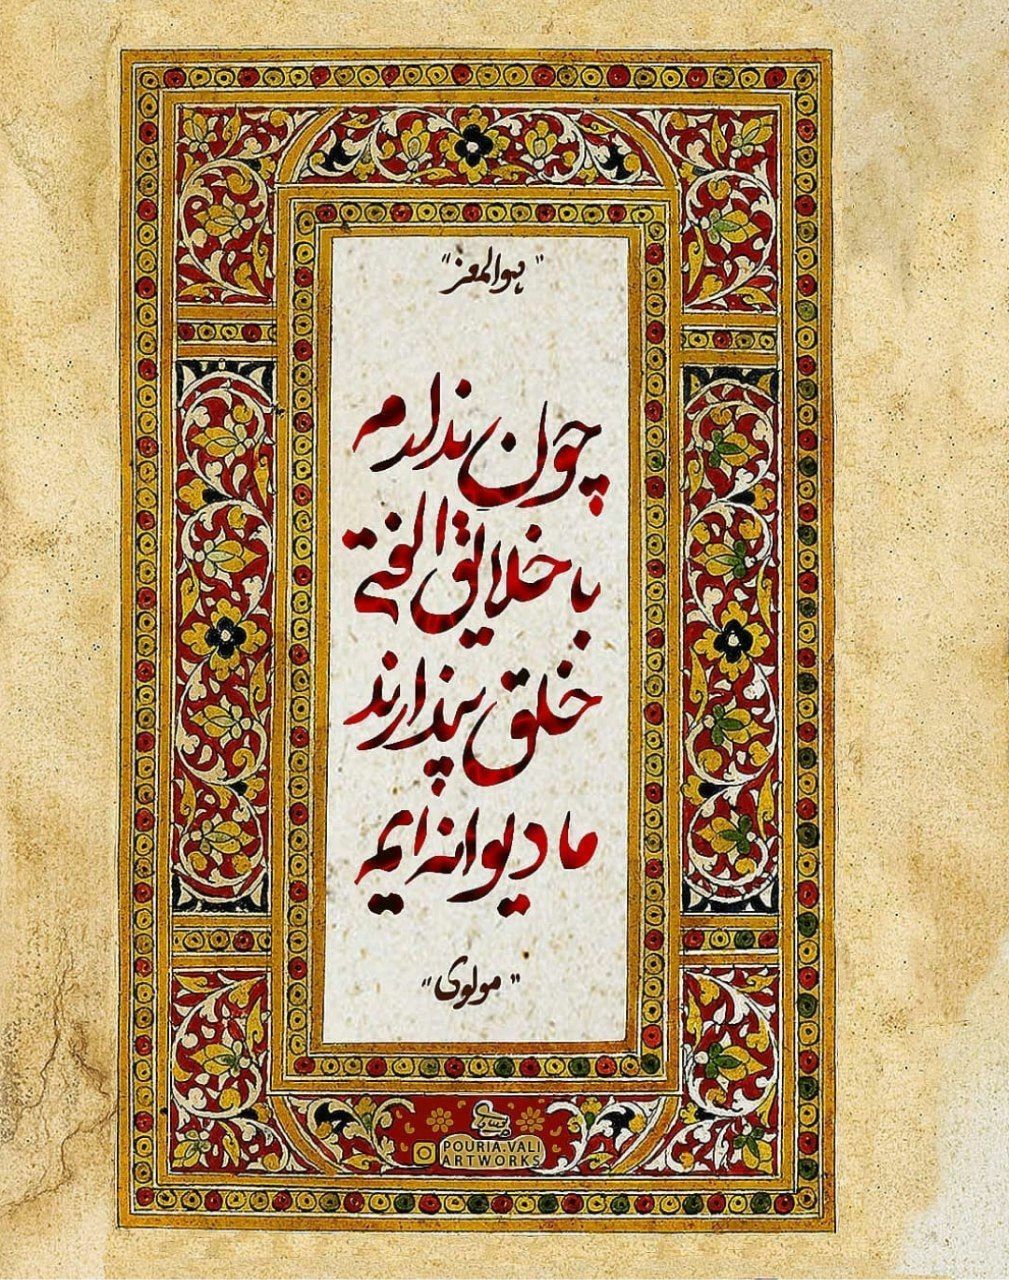 "هوالمعز"
چون ندارم
با خلایق الفتی
خلق پندارند
ما دیوانه ایم
"مولوی"
POURIA.VALI
ARTWORKS